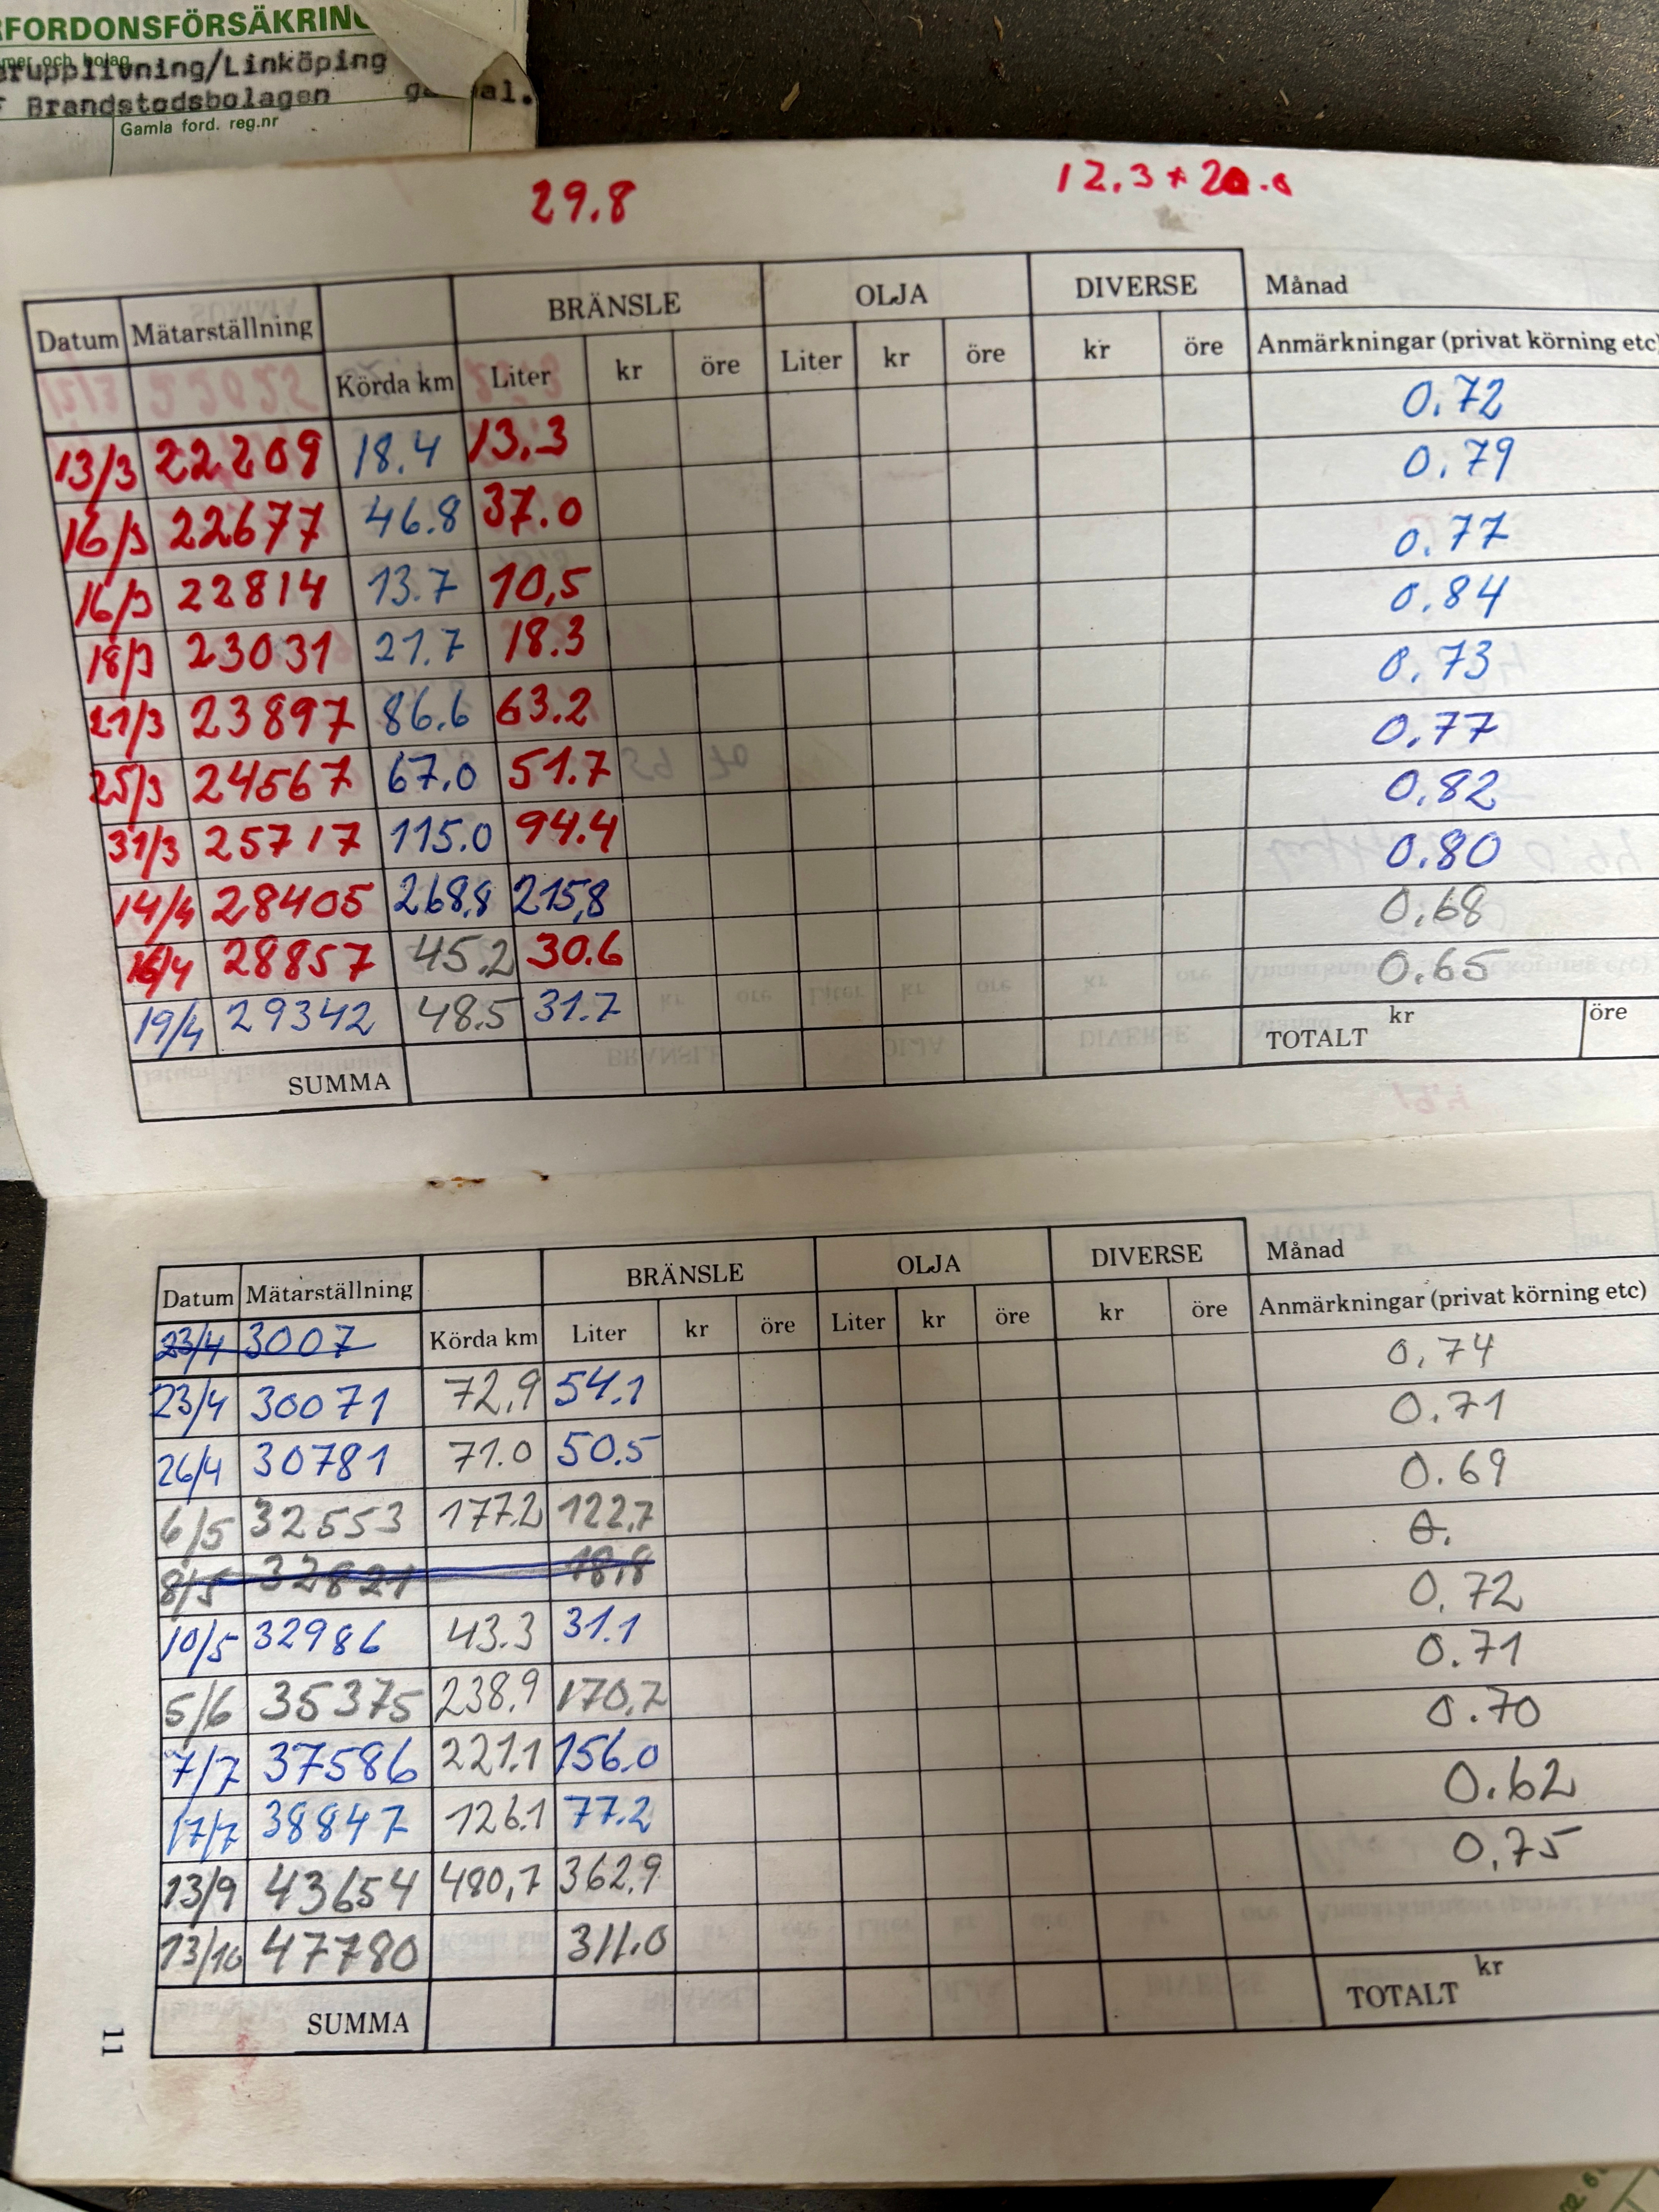 FORDONSFÖRSÄKRIN
mer och bolag
erupplivning/Linköping
Brandstodsbolagen
Gamla ford. reg.nr
29.8
12.3
Datum Mätarställning BRÄNSLE OLJA DIVERSE Månad
Körda km Liter kr öre Liter kr öre kr öre Anmärkningar (privat körning etc)
0.72
13/3 22209 18.4 13.3 0.79
16/3 22677 46.8 37.0 0.77
16/3 22814 13.7 10,5 0.84
18/3 23031 21.7 18.3 0.73
21/3 23897 86.6 63.2 0.77
25/3 24567 67.0 51.7 0.82
31/3 25717 115.0 94.4 0.80
14/4 28405 268,8 215,8 0,68
16/4 28857 45.2 30.6 0.65
19/4 29342 48.5 31.7
SUMMA TOTALT kr öre
Datum Mätarställning BRÄNSLE OLJA DIVERSE Månad
23/4 3007 Körda km Liter kr öre Liter kr öre kr öre Anmärkningar (privat körning etc)
0,74
23/4 30071 72,9 54.1 0.71
26/4 30781 71.0 50.5 0.69
6/5 32553 177.2 122,7 0.
8/5 32821 18,8 0,72
10/5 32986 43.3 31.1 0.71
5/6 35375 238,9 170,7 0.70
7/7 37586 221.1 156.0 0.62
17/7 38847 126.1 77.2 0,75
13/9 43654 480,7 362,9
13/10 47780 311.0
SUMMA TOTALT kr
11